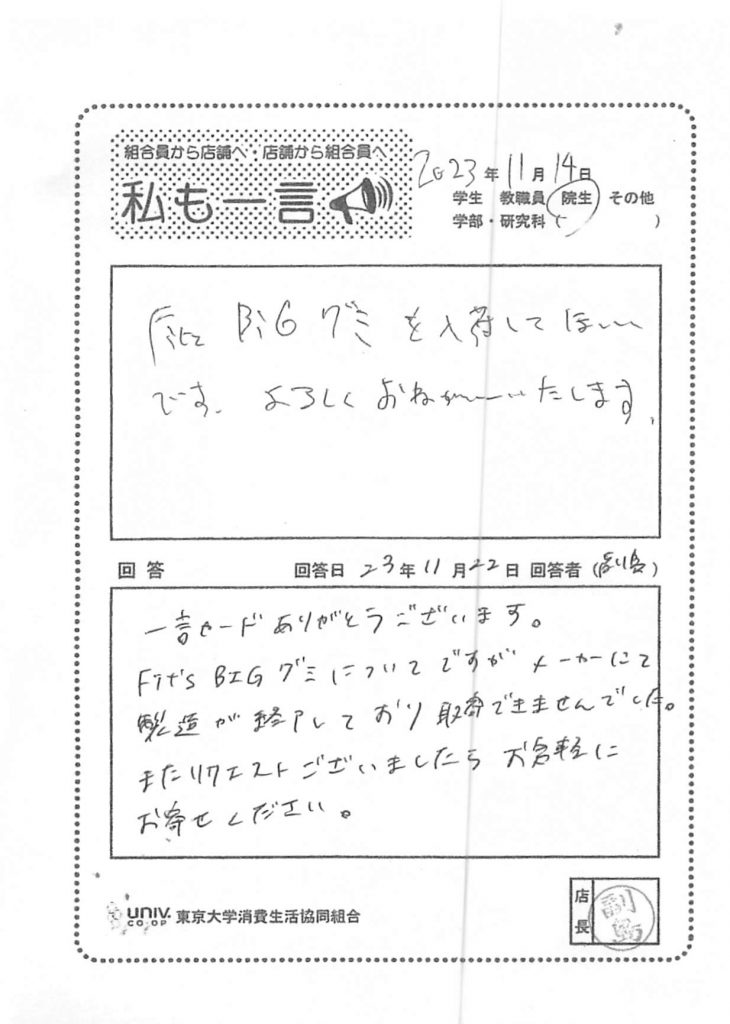 組合員から店舗へ・店舗から組合員へ
私も一言
2023年11月14日
学生 教職員 院生 その他
学部・研究科 ( )
Fits BiG グミ を入荷してほしい
です。よろしくおねがいいたします。
回答 回答日 23年11月22日 回答者 (副島)
一言カードありがとうございます。
Fit's BIG グミについてですがメーカーにて
製造が終了しており取寄できませんでした。
またリクエストございましたらお気軽に
お寄せください。
univ. CO-OP 東京大学消費生活協同組合
店長 副島